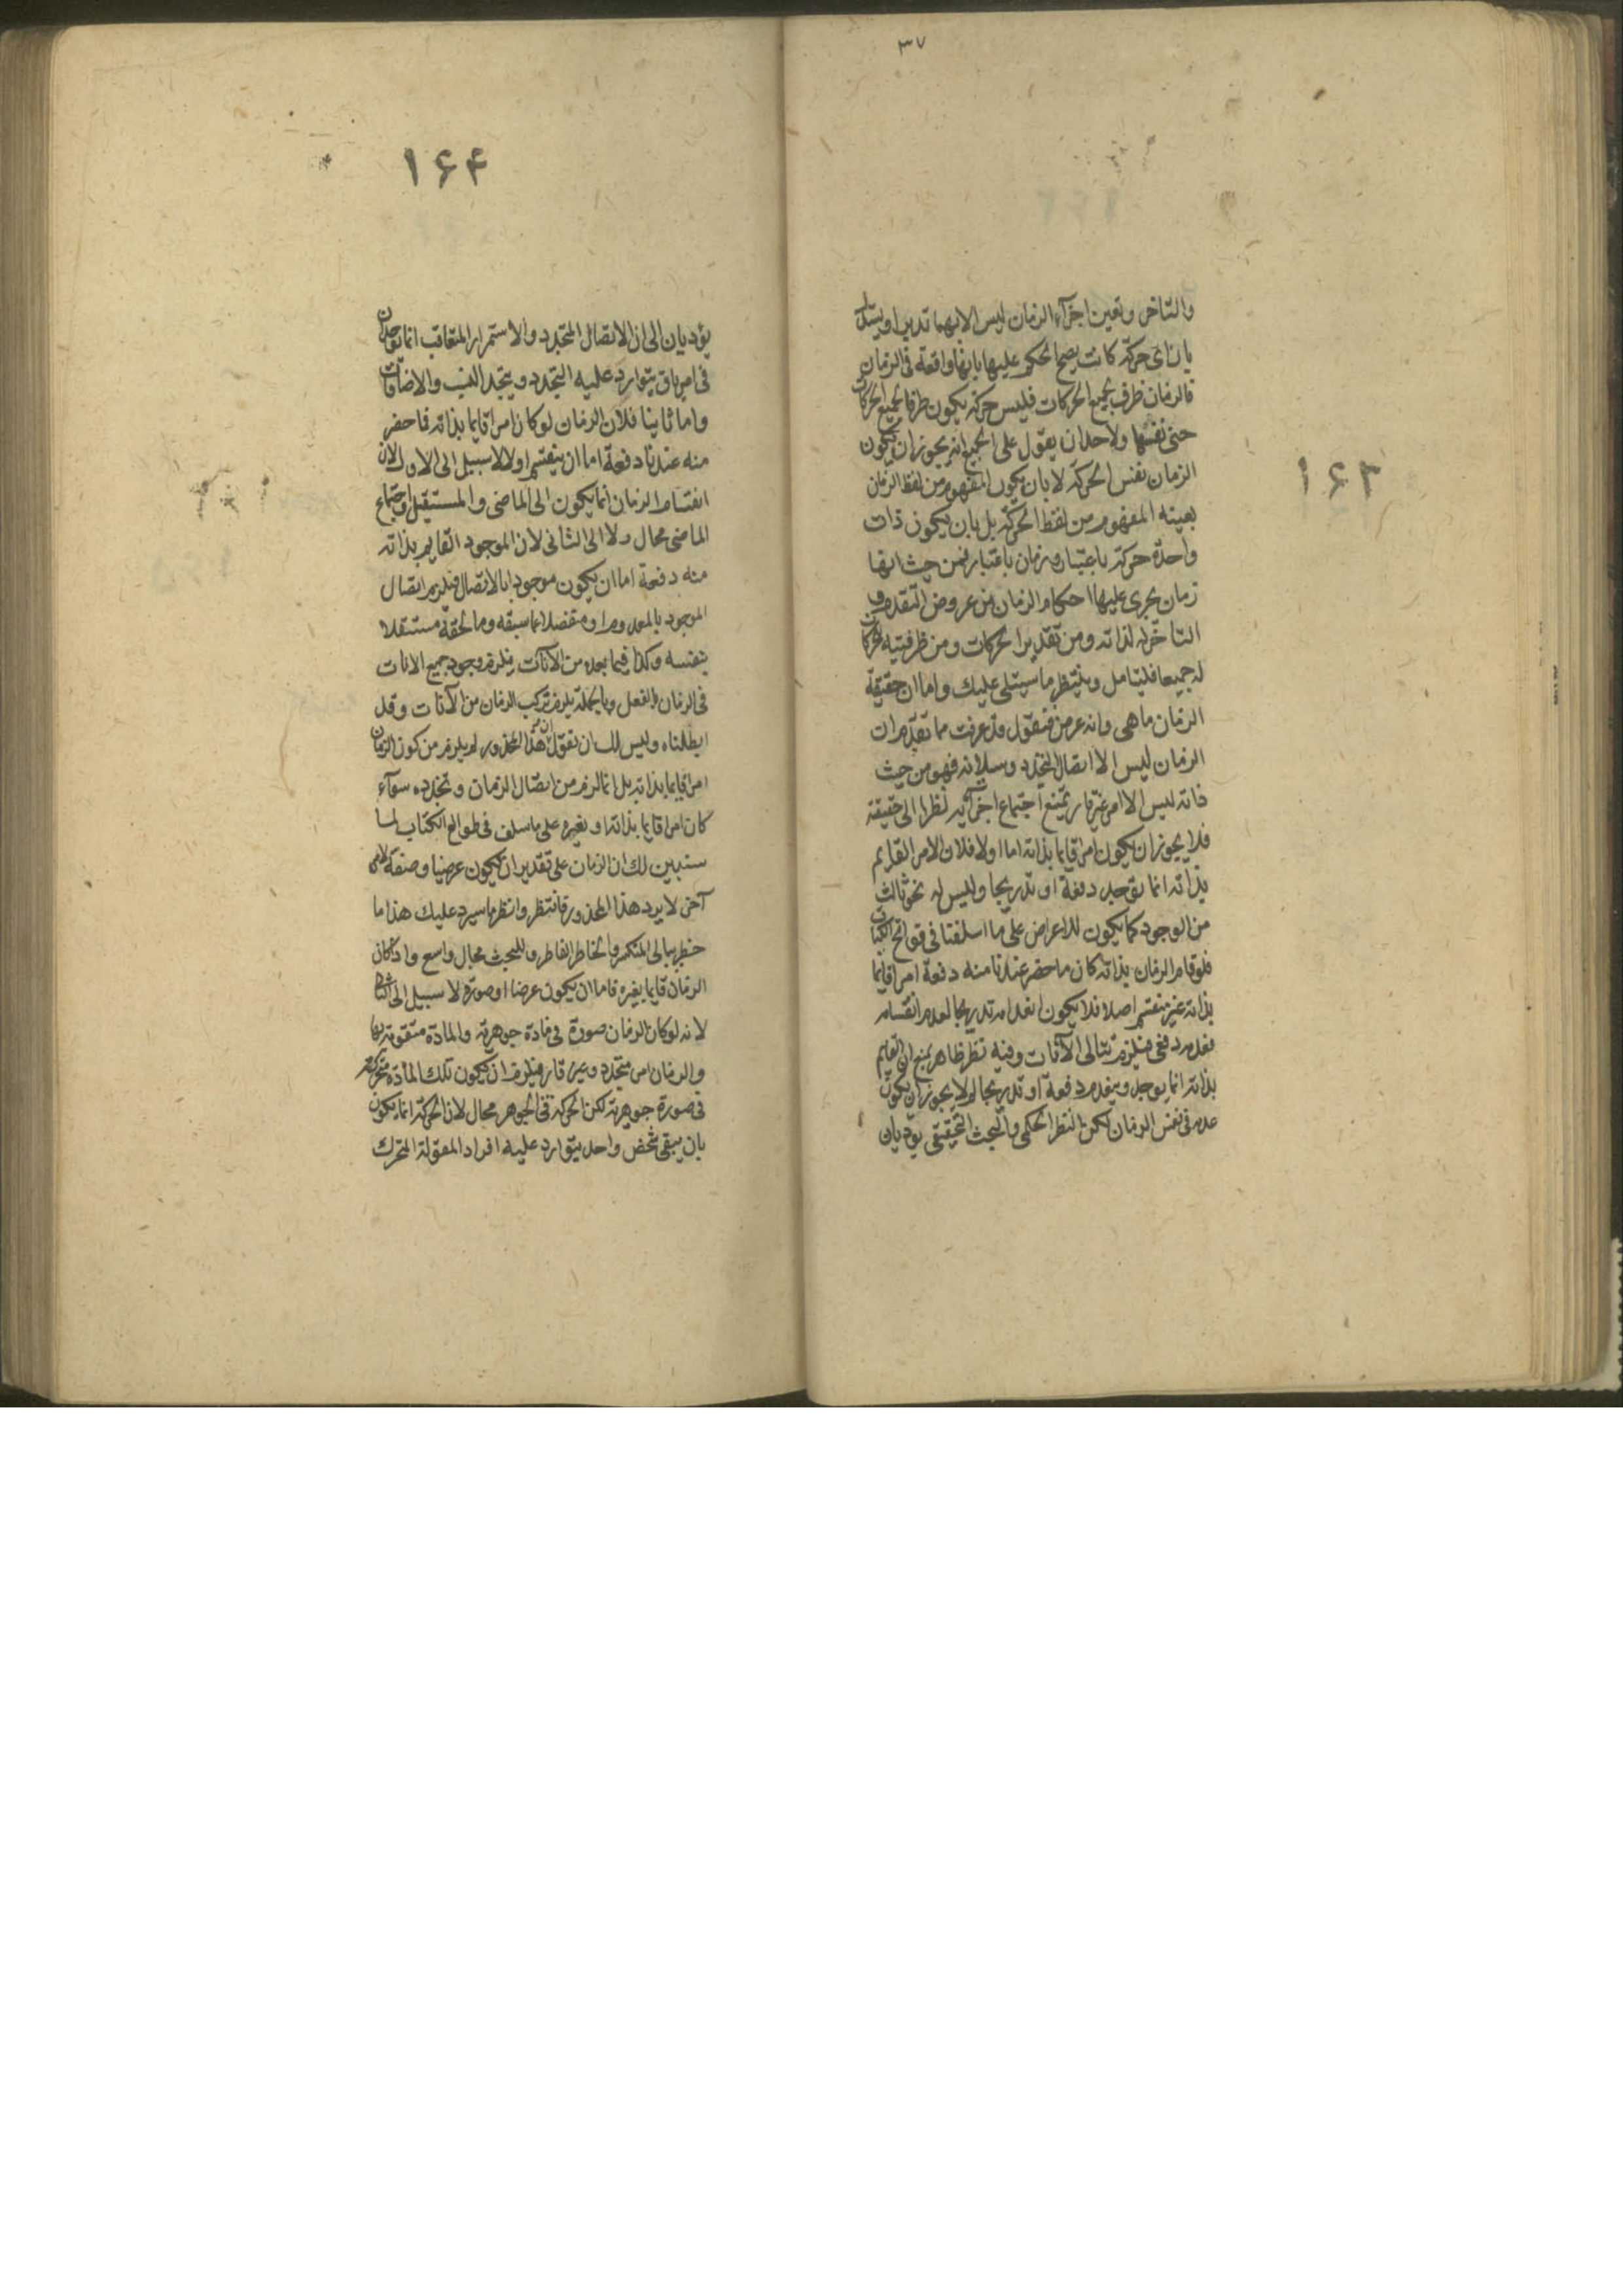 ٣٧
١۶٣
والتاخر وتعين اجزآء الزمان ليس الا بهما تدبر او يستدل
بان اى حركة كانت يصح الحكم عليها بانها واقعة فى الزمان
فالزمان ظرف لجميع الحركات فليس حركة يكون ظرفا لجميع الحركات
حتى نفسها ولاحد ان يقول على الجميع انه يجوز ان يكون
الزمان نفس الحركة لا بان يكون المفهوم من لفظ الزمان
بعينه المفهوم من لفظ الحركة بل بان يكون ذات
واحدة حركة باعتبار وزمان باعتبار فمن حيث انها
زمان يجرى عليها احكام الزمان من عروض التقدم و
التاخر له لذاته ومن تقدير الحركات ومن ظرفيته للحركات
له جميعا فليتامل ولينتظر ما سيتلى عليك واما ان حقيقة
الزمان ما هى وانه عرض فنقول قد عرفت مما تقدم ان
الزمان ليس الا اتصال التجدد وسيلانه فهو من حيث
ذاته ليس الا امر غير قار يمتنع اجتماع اجزائه نظرا الى حقيقة
فلا يجوز ان يكون امرا قايما بذاته اما اولا فلان الامر القايم
بذاته انما يوجد دفعة او تدريجا وليس له نحو ثالث
من الوجود كما يكون للاعراض على ما اسلفنا فى فواتح الكتاب
فلو قام الزمان بذاته كان ما حضر عندنا منه دفعة امرا قايما
بذاته غير منقسم اصلا فلا يكون انعدامه تدريجا لعدم انقسامه
فعدمه دفعى فيلزم تتالى الآنات وفيه نظر ظاهر بمنع ان القايم
بذاته انما يوجد وينعدم دفعة او تدريجا لم لا يجوز ان يكون
عدمه فى نفس الزمان لكن النظر الحكمى والبحث التحقيقى يؤديان
١۶۴
يؤديان الى ان الاتصال المتجدد والاستمرار المتعاقب انما يوجدان
فى امر باق يتوارد عليه التجدد ويتجدد النسب والاضافات
واما ثانيا فلان الزمان لو كان امرا قايما بذاته فما حضر
منه عندنا دفعة اما ان ينقسم او لا لا سبيل الى الاول لان
انقسام الزمان انما يكون الى الماضى والمستقبل واجتماع
الماضى محال ولا الى الثانى لان الموجود القايم بذاته
منه دفعة اما ان يكون موجودا بالاتصال فيلزم اتصال
الموجود بالمعدوم او منفصلا عما سبقه وما لحقه مستقلا
بنفسه وكذا فيما بعده من الآنات فيلزم وجود جميع الانات
فى الزمان بالفعل وبالجملة يلزم تركب الزمان من الآنات وقد
ابطلناه وليس لك ان تقول ان هذا المحذور لم يلزم من كون الزمان
امرا قايما بذاته بل انما لزم من اتصال الزمان وتجدده سوآء
كان امرا قايما بذاته او بغيره على ما سلف فى طوالع الكتاب لما
سنبين لك ان الزمان على تقدير ان يكون عرضيا وصفة لامر
آخر لا يرد هذا المحذور فانتظر وانتظر ما سيرد عليك هذا ما
خطر ببالى المنكسر والخاطر الفاطر وللبحث مجال واسع واذا كان
الزمان قايما بغيره فاما ان يكون عرضا او صورة لا سبيل الى الثانى
لانه لو كان الزمان صورة فى مادة جوهرية والمادة متقومة بها
والزمان امر متجدد وغير قار فيلزم ان يكون تلك المادة متحركة
فى صورة جوهرية لكن الحركة فى الجوهر محال لان الحركة انما يكون
بان يبقى شخص واحد يتوارد عليه افراد المقولة المتحرك